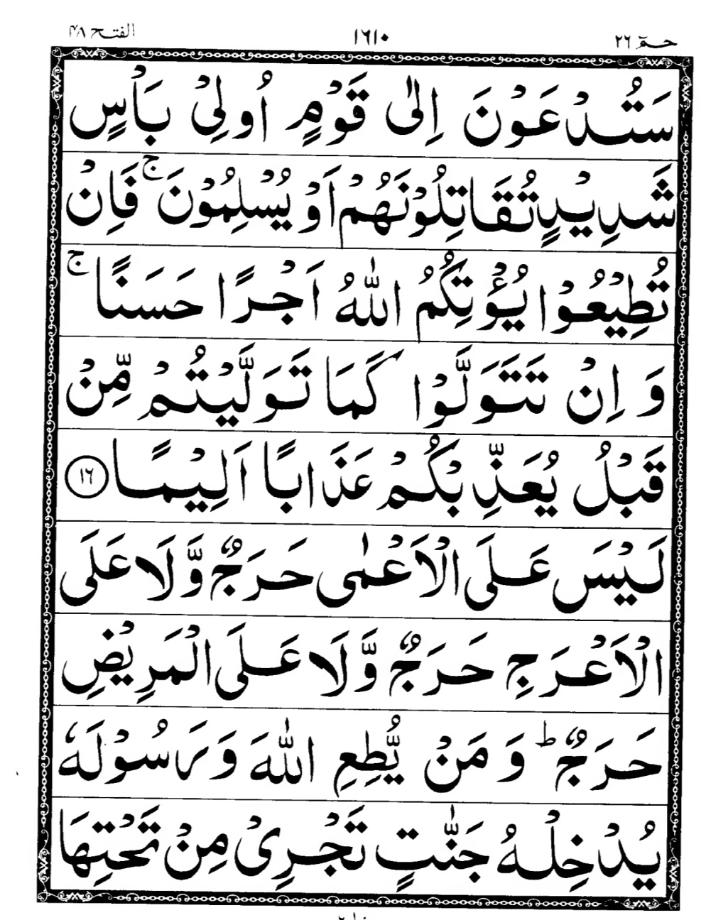 حٰمٓ ٢٦ ١٦١٠ الفتح ٤٨
سَتُدْعَوْنَ اِلٰى قَوْمٍ اُولِىْ بَاْسٍ
شَدِيْدٍ تُقَاتِلُوْنَهُمْ اَوْ يُسْلِمُوْنَ ۚ فَاِنْ
تُطِيْعُوْا يُؤْتِكُمُ اللّٰهُ اَجْرًا حَسَنًا ۚ
وَ اِنْ تَتَوَلَّوْا كَمَا تَوَلَّيْتُمْ مِّنْ
قَبْلُ يُعَذِّبْكُمْ عَذَابًا اَلِيْمًا ﴿١٦﴾
لَيْسَ عَلَى الْاَعْمٰى حَرَجٌ وَّلَا عَلَى
الْاَعْرَجِ حَرَجٌ وَّلَا عَلَى الْمَرِيْضِ
حَرَجٌ ؕ وَ مَنْ يُّطِعِ اللّٰهَ وَرَسُوْلَهٗ
يُدْخِلْهُ جَنّٰتٍ تَجْرِىْ مِنْ تَحْتِهَا